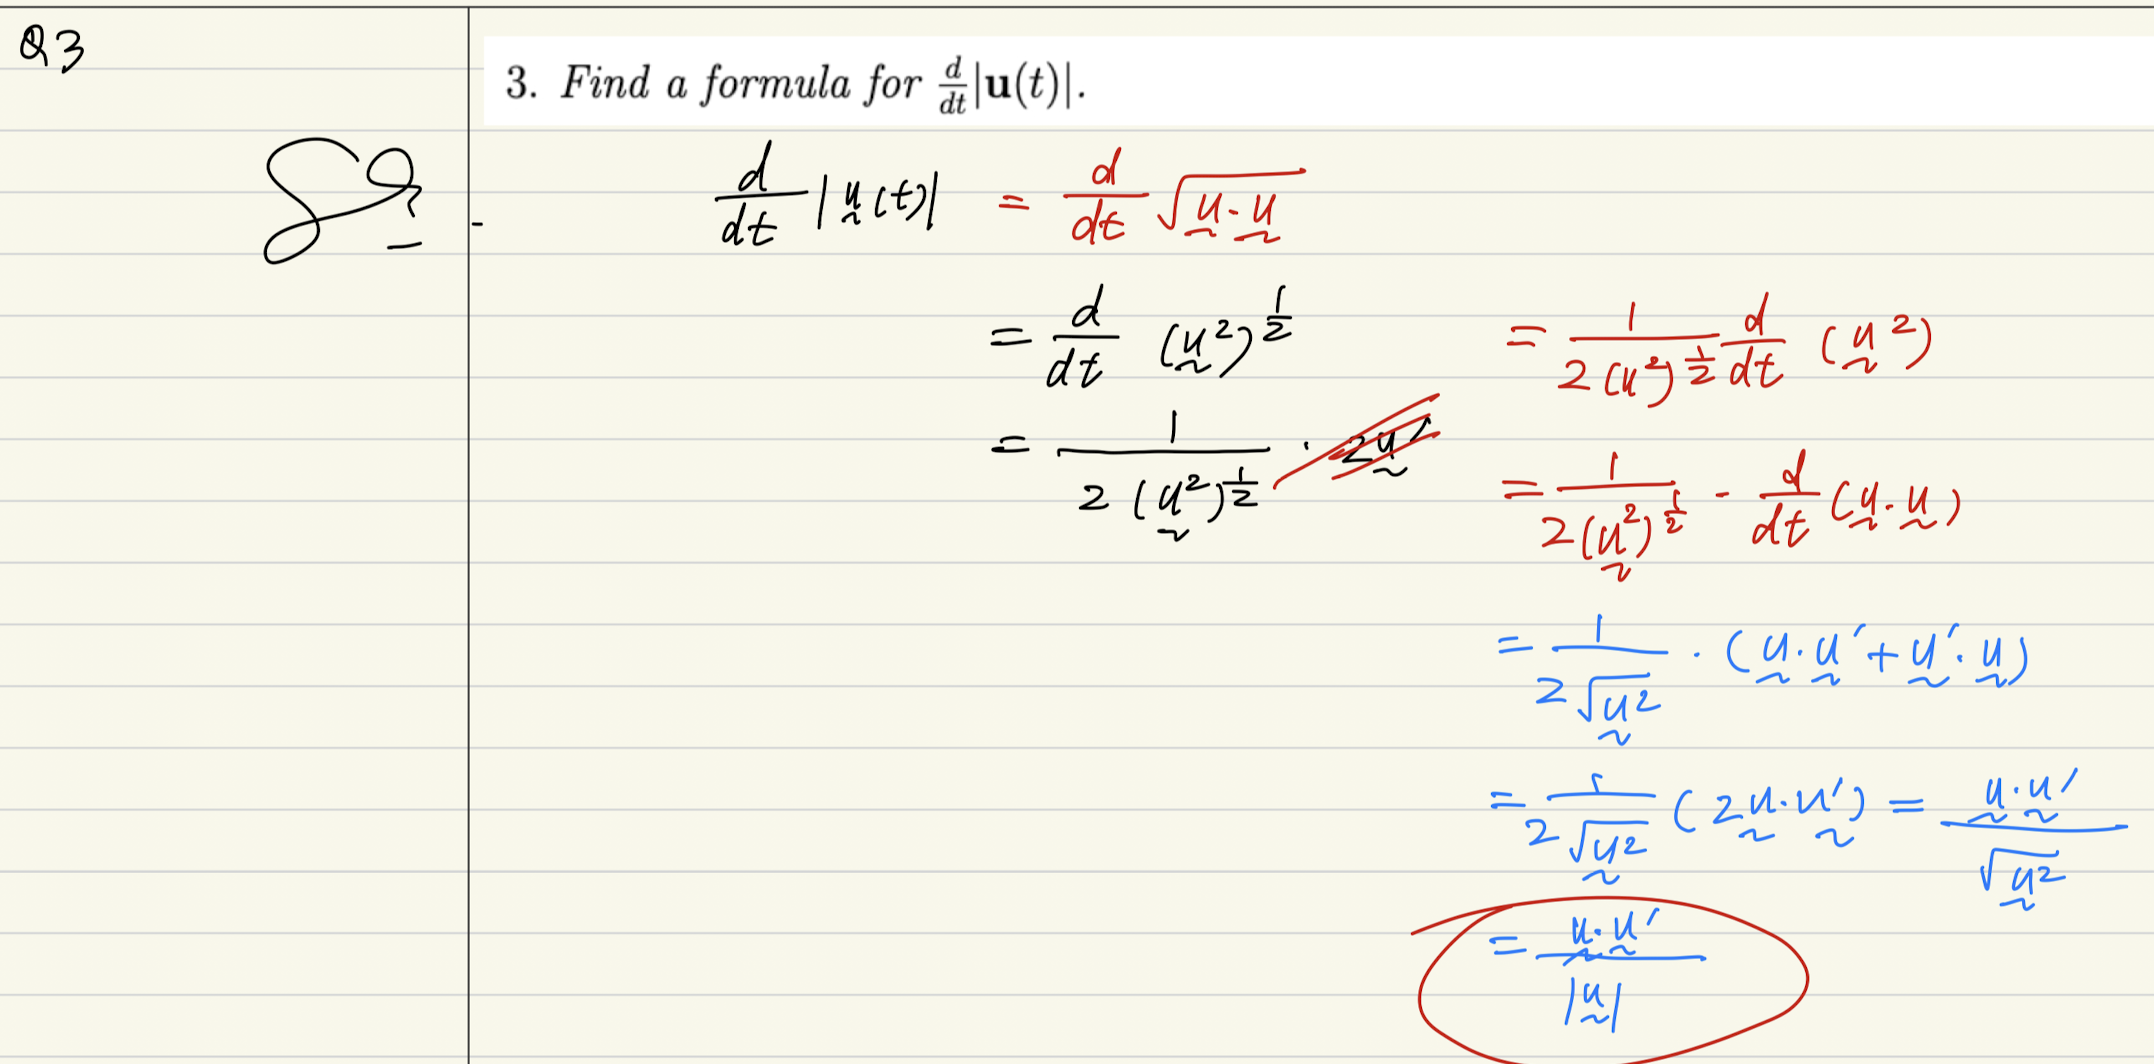 Q3
3. Find a formula for d/dt |u(t)|.
d/dt |u(t)| = d/dt √(u·u)
= d/dt (u²)^(1/2)
= 1/(2(u²)^(1/2)) · 2u′
= 1/(2(u²)^(1/2)) d/dt (u²)
= 1/(2(u²)^(1/2)) - d/dt (u·u)
= 1/(2√u²) · (u·u′ + u′·u)
= 1/(2√u²) (2u·u′) = u·u′/√u²
= u·u′/|u|